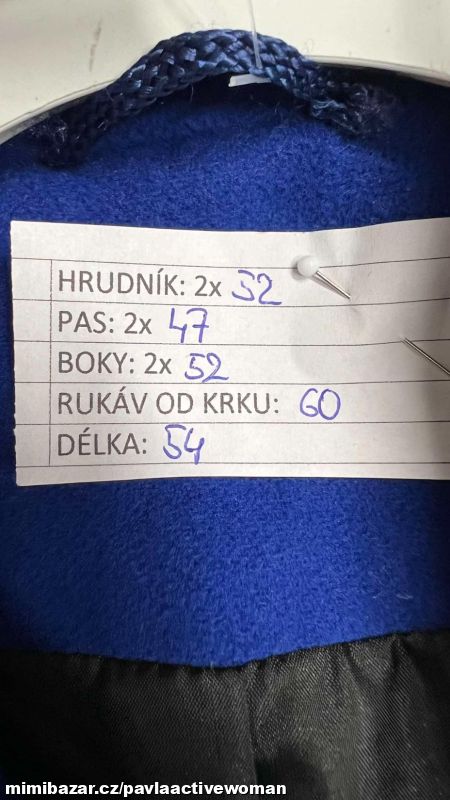 HRUDNÍK: 2x 52
PAS: 2x 47
BOKY: 2x 52
RUKÁV OD KRKU: 60
DÉLKA: 54
mimibazar.cz/pavlaactivewoman